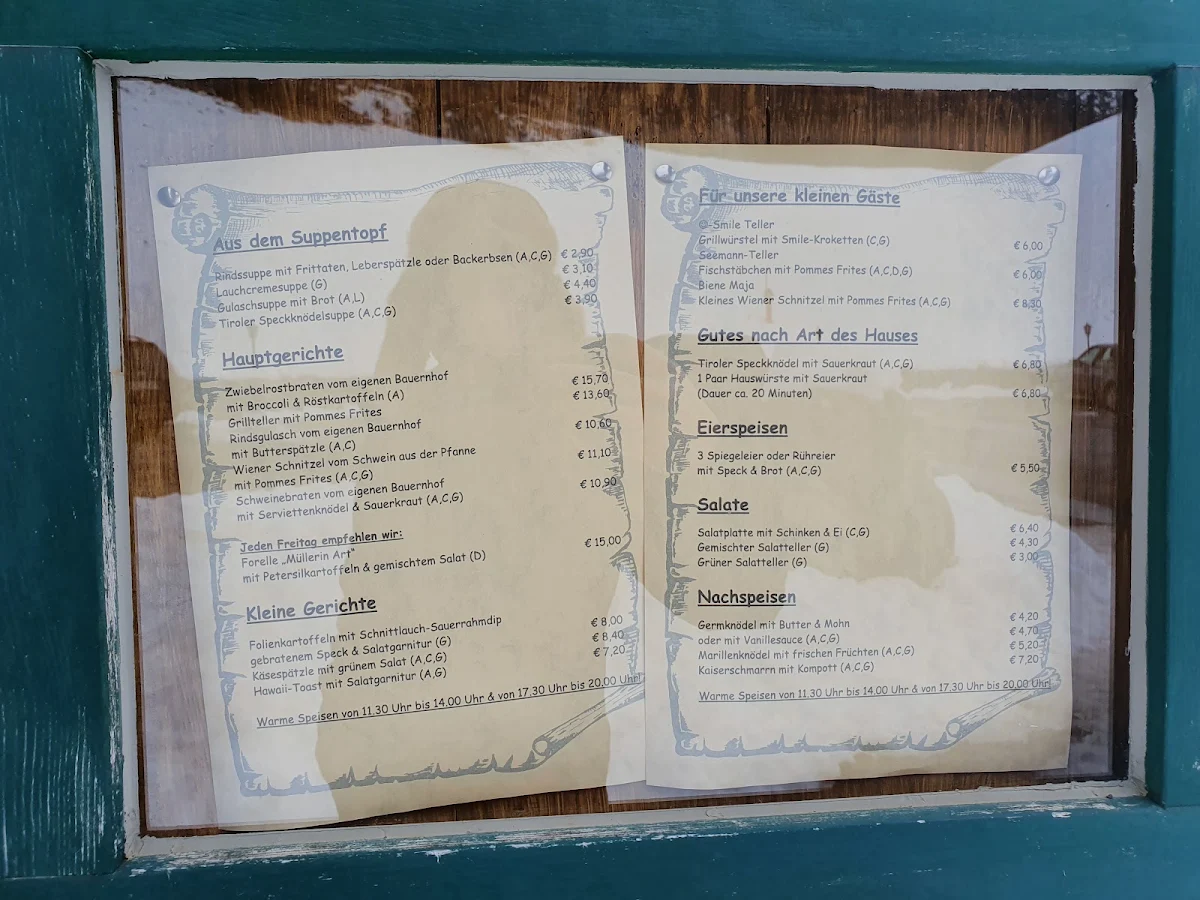 Aus dem Suppentopf
Rindssuppe mit Frittaten, Leberspätzle oder Backerbsen (A,C,G) € 2,90
Lauchcremesuppe (G) € 3,10
Gulaschsuppe mit Brot (A,L) € 4,40
Tiroler Speckknödelsuppe (A,C,G) € 3,90
Hauptgerichte
Zwiebelrostbraten vom eigenen Bauernhof
mit Broccoli & Röstkartoffeln (A) € 15,70
Grillteller mit Pommes Frites € 13,60
Rindsgulasch vom eigenen Bauernhof
mit Butterspätzle (A,C) € 10,60
Wiener Schnitzel vom Schwein aus der Pfanne
mit Pommes Frites (A,C,G) € 11,10
Schweinebraten vom eigenen Bauernhof
mit Serviettenknödel & Sauerkraut (A,C,G) € 10,90
Jeden Freitag empfehlen wir:
Forelle „Müllerin Art"
mit Petersilkartoffeln & gemischtem Salat (D) € 15,00
Kleine Gerichte
Folienkartoffeln mit Schnittlauch-Sauerrahmdip
gebratenem Speck & Salatgarnitur (G) € 8,00
Käsespätzle mit grünem Salat (A,C,G) € 8,40
Hawaii-Toast mit Salatgarnitur (A,G) € 7,20
Warme Speisen von 11.30 Uhr bis 14.00 Uhr & von 17.30 Uhr bis 20.00 Uhr!
Für unsere kleinen Gäste
☺-Smile Teller
Grillwürstel mit Smile-Kroketten (C,G) € 6,00
Seemann-Teller
Fischstäbchen mit Pommes Frites (A,C,D,G) € 6,00
Biene Maja
Kleines Wiener Schnitzel mit Pommes Frites (A,C,G) € 8,30
Gutes nach Art des Hauses
Tiroler Speckknödel mit Sauerkraut (A,C,G) € 6,80
1 Paar Hauswürste mit Sauerkraut
(Dauer ca. 20 Minuten) € 6,80
Eierspeisen
3 Spiegeleier oder Rühreier
mit Speck & Brot (A,C,G) € 5,50
Salate
Salatplatte mit Schinken & Ei (C,G) € 6,40
Gemischter Salatteller (G) € 4,30
Grüner Salatteller (G) € 3,00
Nachspeisen
Germknödel mit Butter & Mohn € 4,20
oder mit Vanillesauce (A,C,G) € 4,70
Marillenknödel mit frischen Früchten (A,C,G) € 5,20
Kaiserschmarrn mit Kompott (A,C,G) € 7,20
Warme Speisen von 11.30 Uhr bis 14.00 Uhr & von 17.30 Uhr bis 20.00 Uhr!